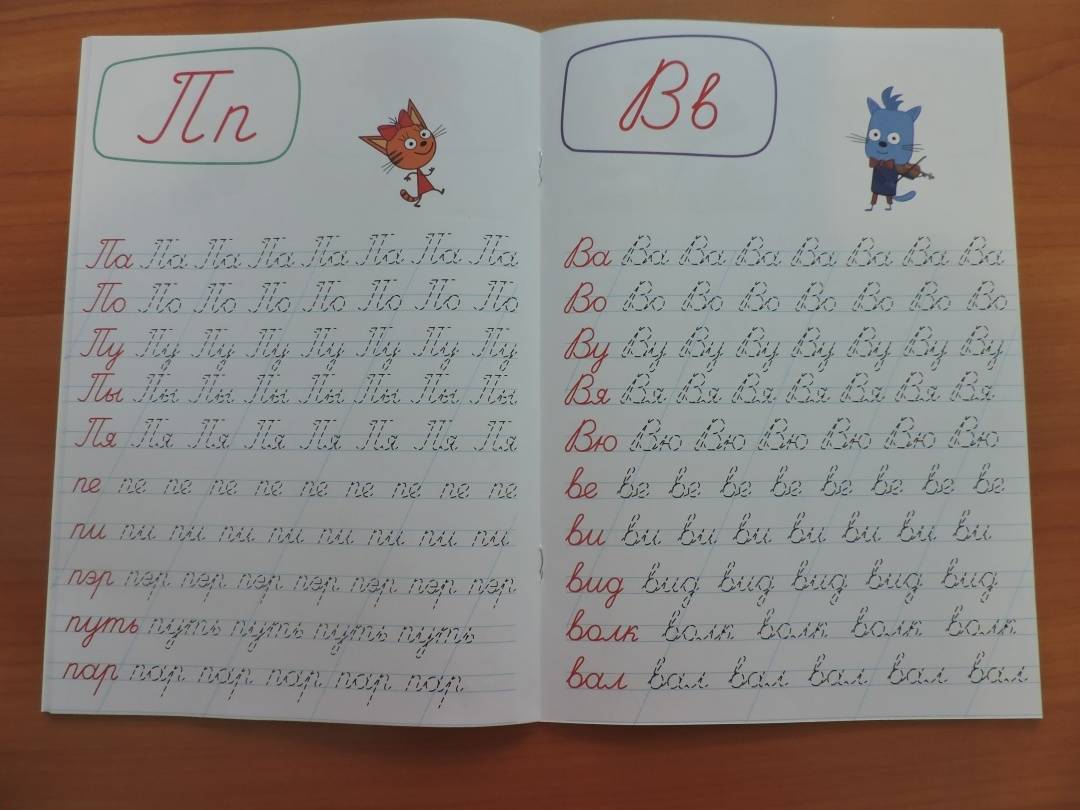 Пп
Па Па Па Па Па Па Па Па
По По По По По По По По
Пу Пу Пу Пу Пу Пу Пу Пу
Пы Пы Пы Пы Пы Пы Пы Пы
Пя Пя Пя Пя Пя Пя Пя
пе пе пе пе пе пе пе пе пе пе
пи пи пи пи пи пи пи пи пи пи
пэр пэр пэр пэр пэр пэр пэр пэр
путь путь путь путь путь
пар пар пар пар пар пар
Вв
Ва Ва Ва Ва Ва Ва Ва Ва
Во Во Во Во Во Во Во Во
Ву Ву Ву Ву Ву Ву Ву Ву
Вя Вя Вя Вя Вя Вя Вя Вя
Вю Вю Вю Вю Вю Вю Вю
ве ве ве ве ве ве ве ве ве
ви ви ви ви ви ви ви ви
вид вид вид вид вид вид
волк волк волк волк волк
вал вал вал вал вал вал